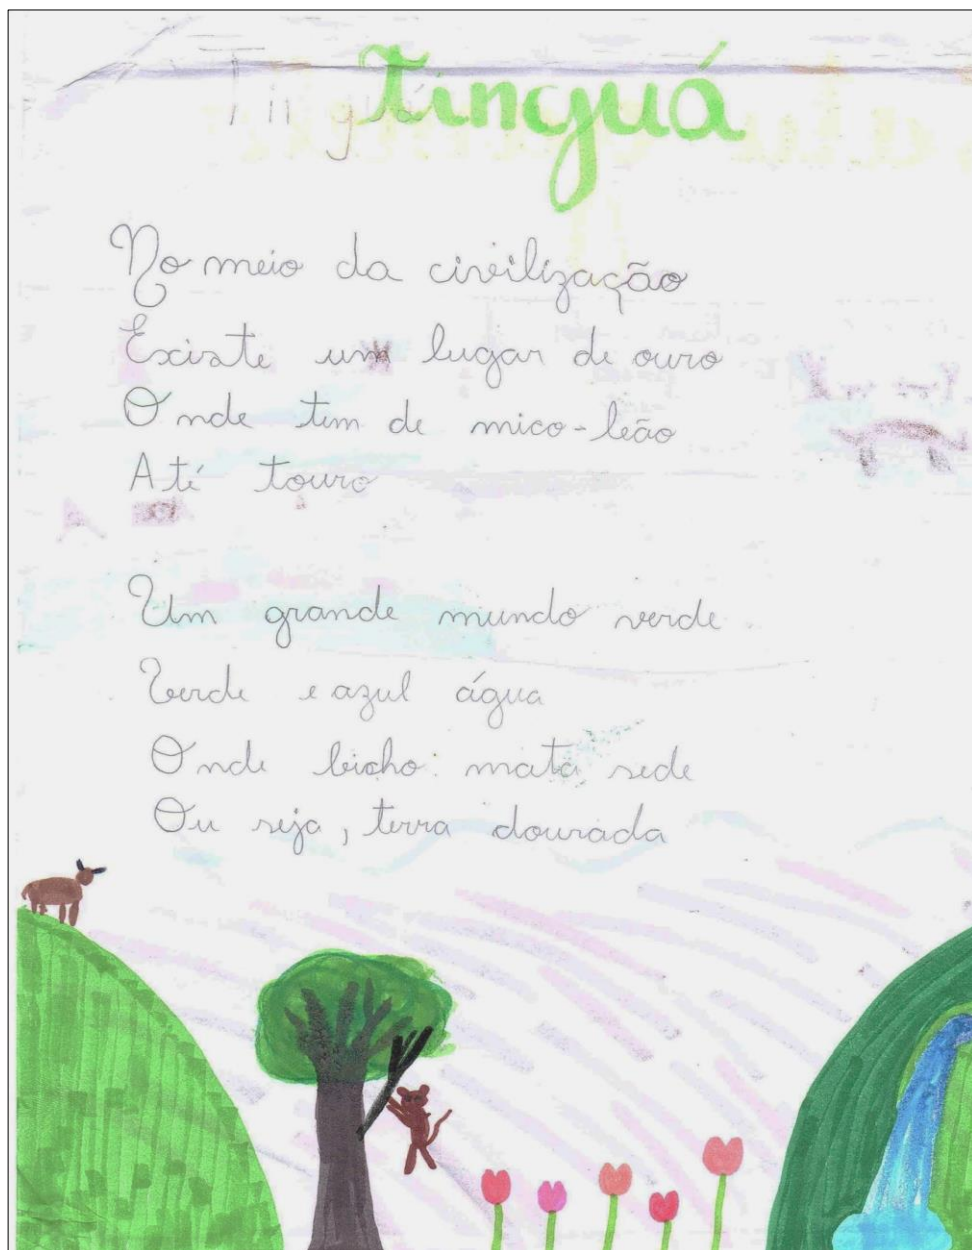 Tinguá
No meio da civilização
Existe um lugar de ouro
Onde tem de mico-leão
Até touro
Um grande mundo verde
Verde e azul água
Onde bicho mata sede
Ou seja, terra dourada